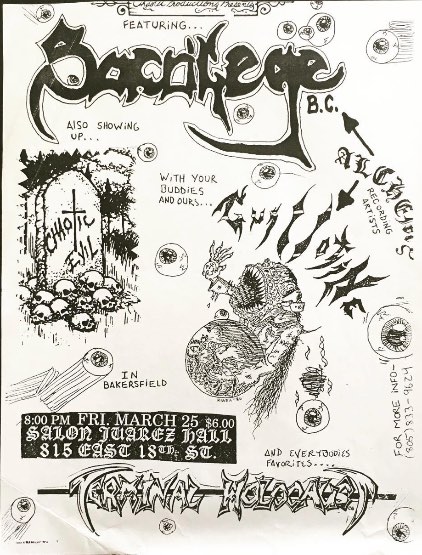 Productions Presents
FEATURING...
Sacrilege
B.C.
ALSO SHOWING
UP...
CHAOTIC
EVIL
WITH YOUR
BUDDIES
AND OURS...
ALCHEMY
RECORDING
ARTISTS
Guillotine
IN
BAKERSFIELD
8:00 PM FRI. MARCH 25 $6.00
SALON JUAREZ HALL
815 EAST 18TH. ST.
FOR MORE INFO-
(805) 833-9624
AND EVERYBODIES
FAVORITES....
TERMINAL HOLOCAUST